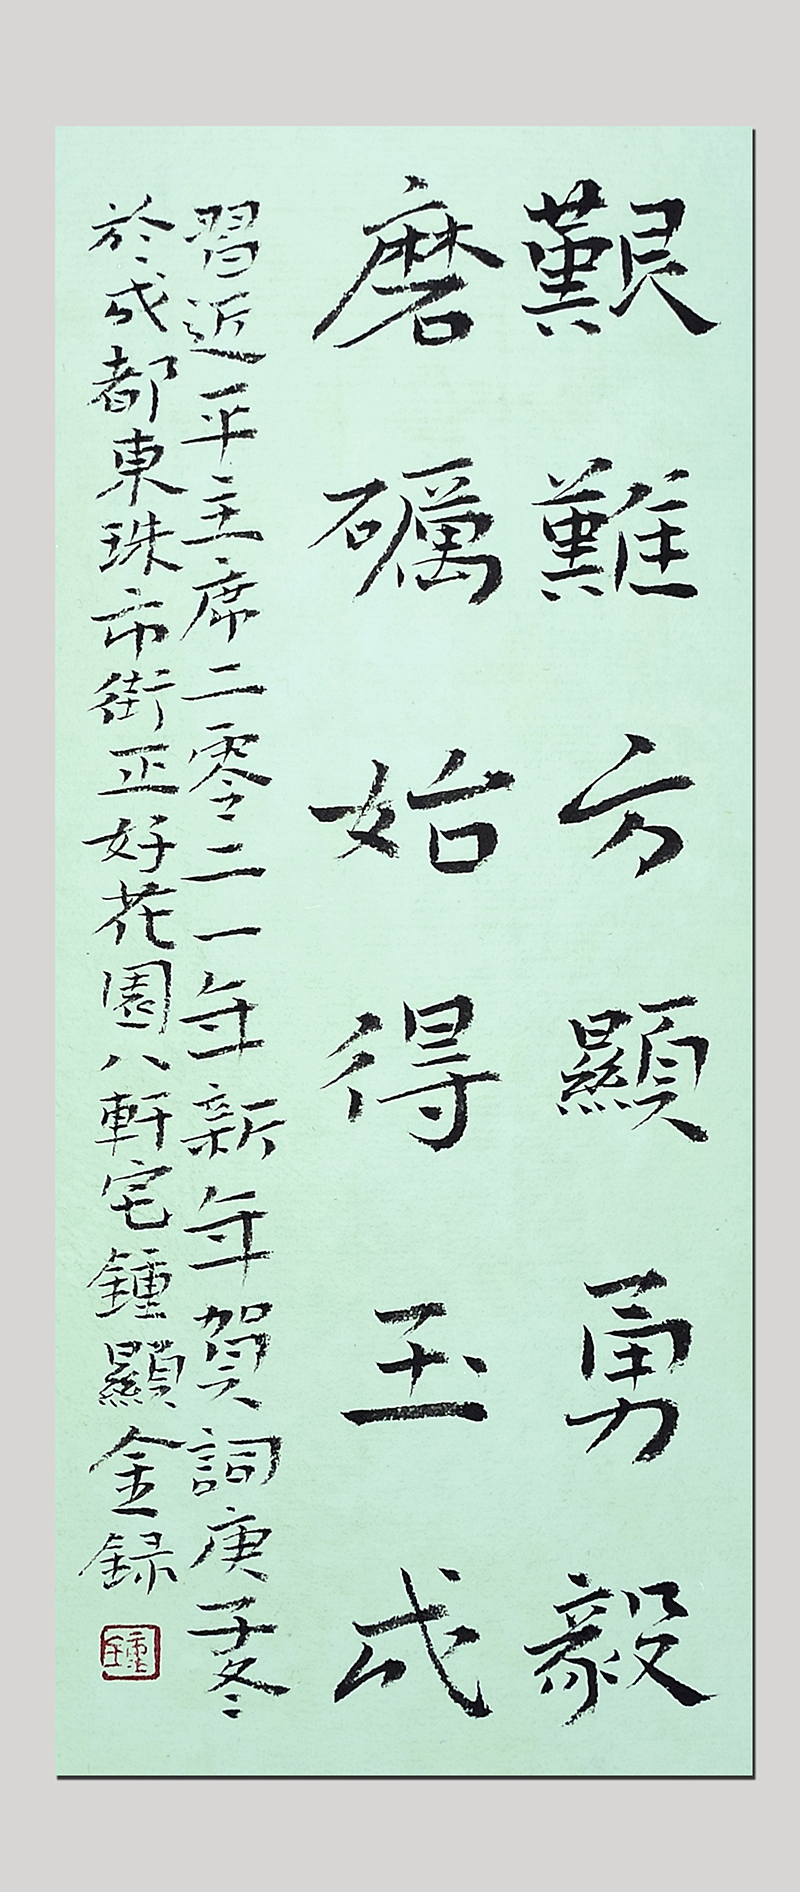 艱難方顯勇毅
磨礪始得玉成
習近平主席二零二一年新年賀詞庚子冬
於成都東珠市街正好花園八軒宅鍾顯金録
鍾